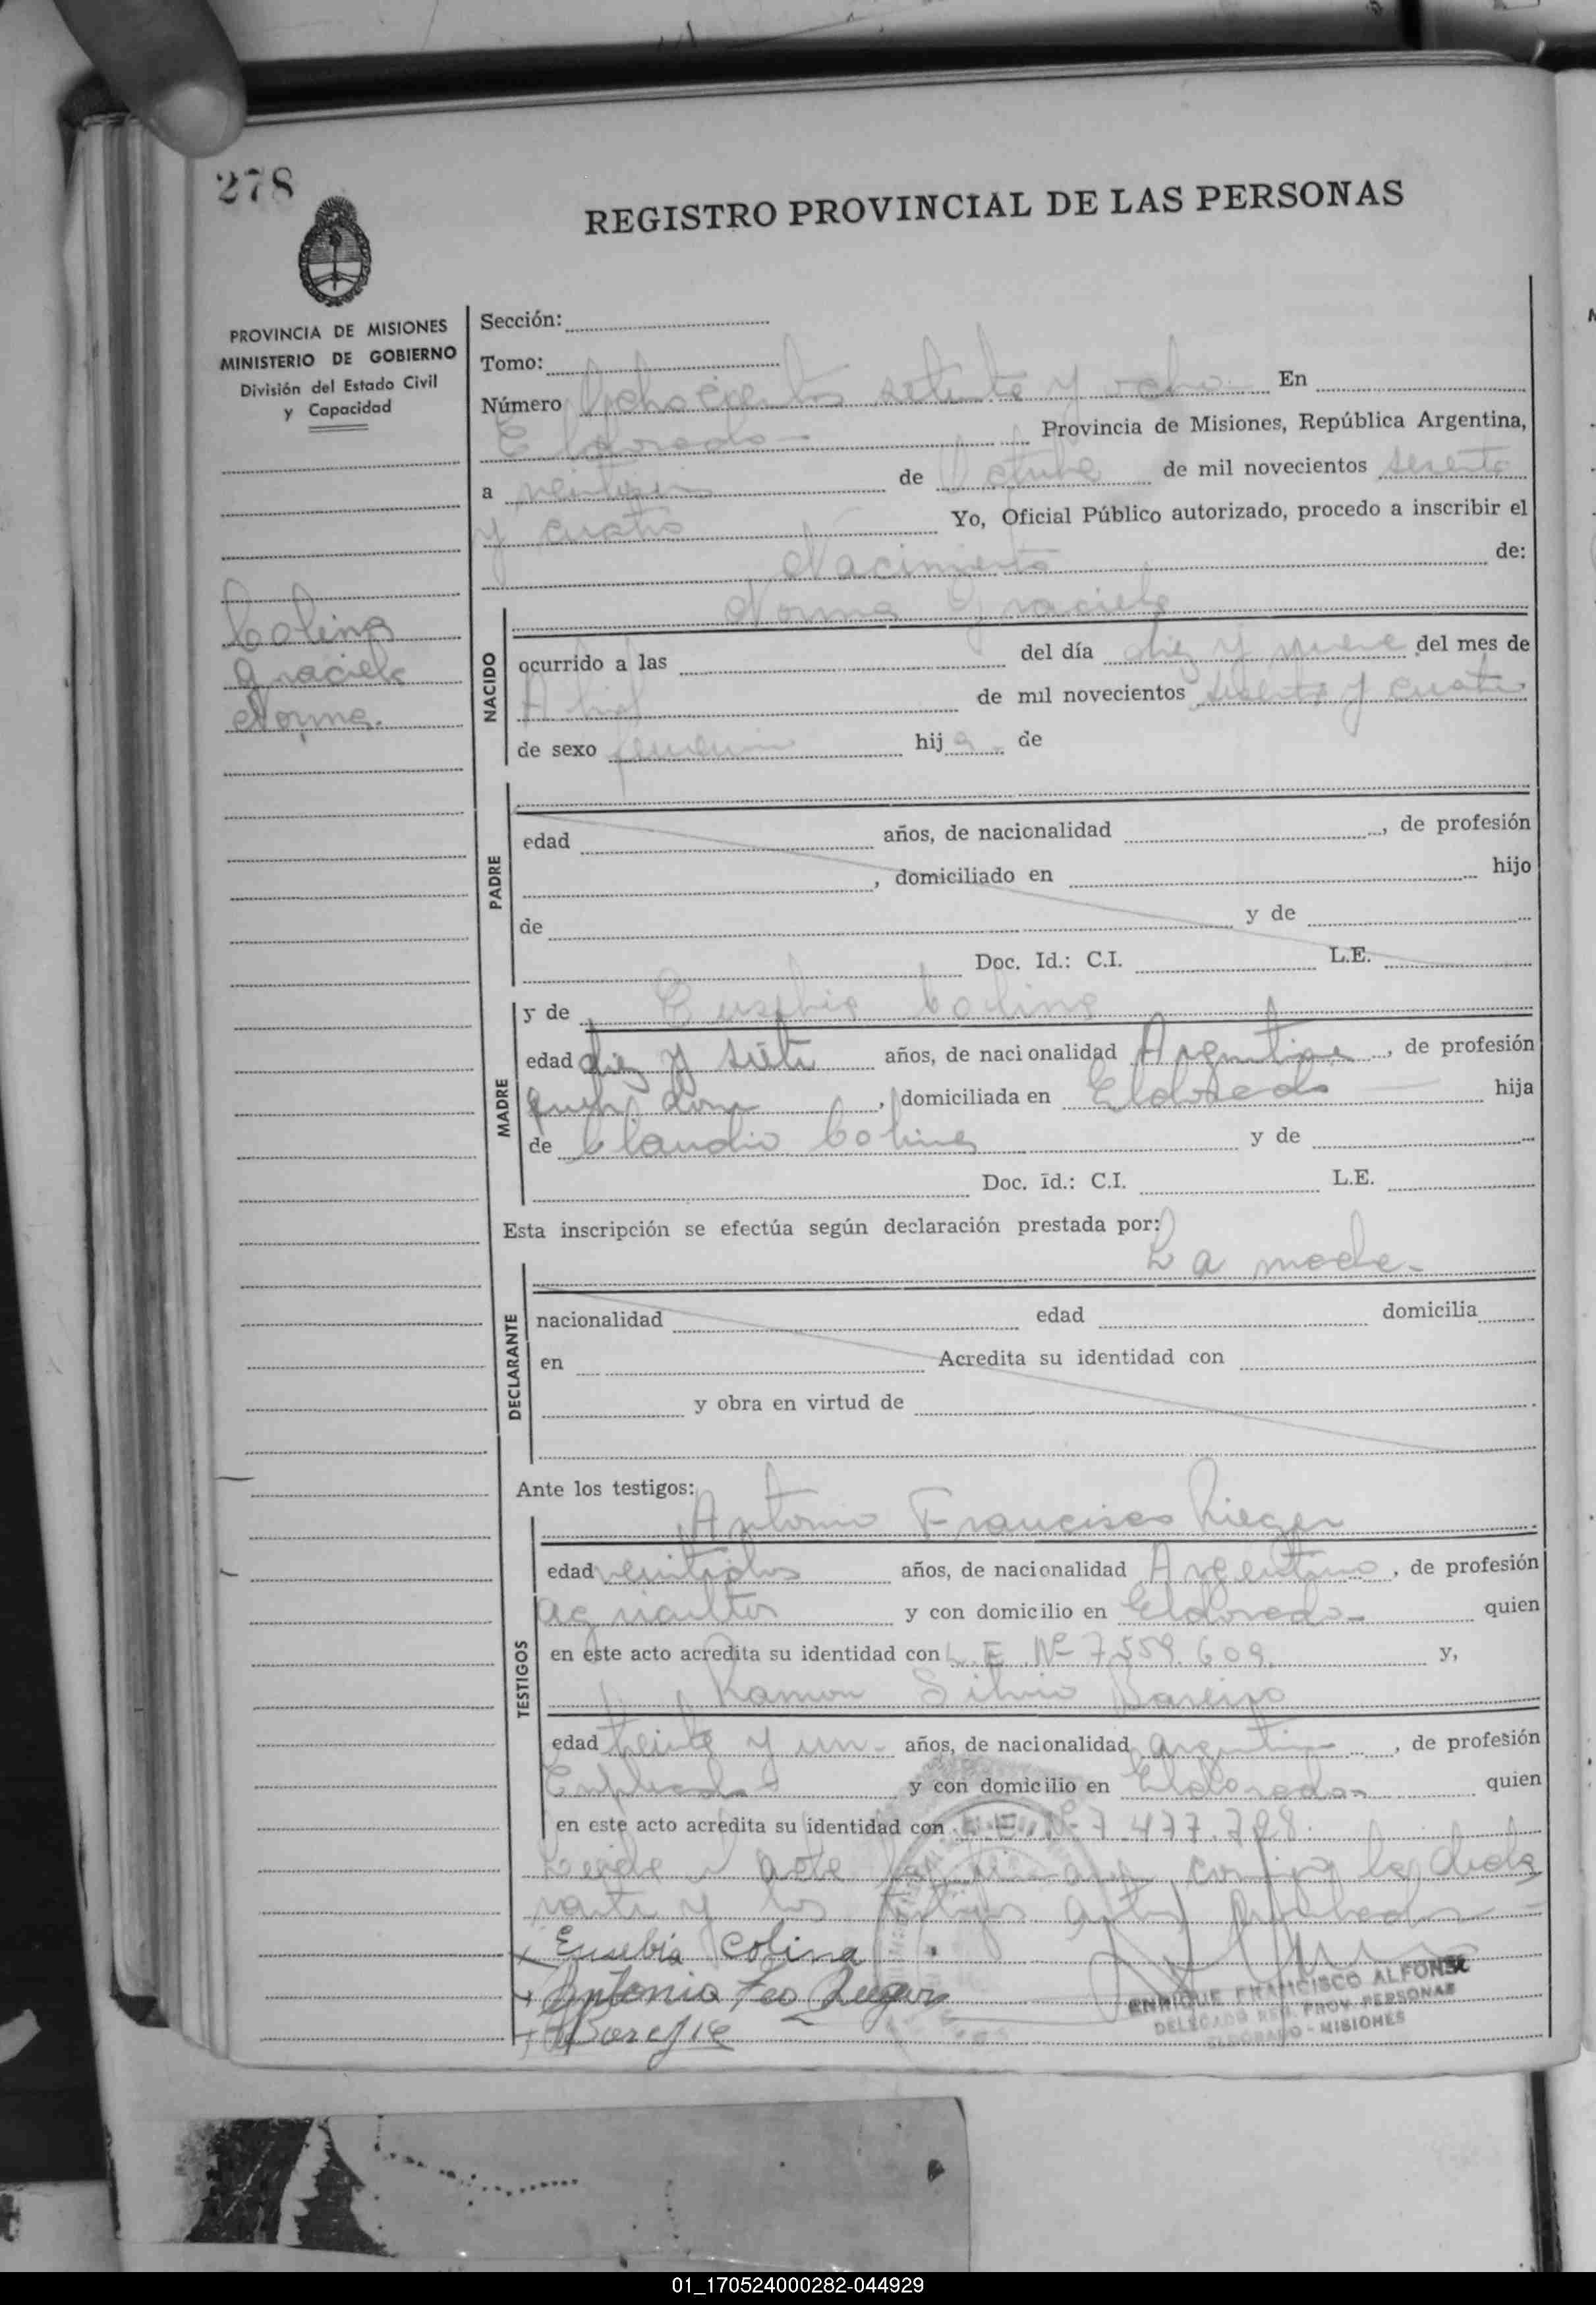 278
REGISTRO PROVINCIAL DE LAS PERSONAS
PROVINCIA DE MISIONES
MINISTERIO DE GOBIERNO
División del Estado Civil
y Capacidad
Colina
Graciela
Norma.
Sección:
Tomo:
Número Ochocientos setenta y ocho En
Eldorado Provincia de Misiones, República Argentina,
a veintiseis de Octubre de mil novecientos sesenta
y cuatro Yo, Oficial Público autorizado, procedo a inscribir el
Nacimiento de:
NACIDO
Norma Graciela
ocurrido a las del día diez y nueve del mes de
Abril de mil novecientos sesenta y cuatro
de sexo femenino hija de
PADRE
edad años, de nacionalidad , de profesión
, domiciliado en hijo
de y de
Doc. Id.: C.I. L.E.
MADRE
y de Eusebia Colina
edad diez y siete años, de nacionalidad Argentina, de profesión
, domiciliada en Eldorado hija
de Claudio Colina y de
Doc. Id.: C.I. L.E.
Esta inscripción se efectúa según declaración prestada por:
La madre-
DECLARANTE
nacionalidad edad domicilia
en Acredita su identidad con
y obra en virtud de
Ante los testigos:
TESTIGOS
Antonio Francisco Rieger
edad veintidos años, de nacionalidad Argentino, de profesión
agricultor y con domicilio en Eldorado- quien
en este acto acredita su identidad con L.E. Nº 7.559.609. y,
Ramon Silvio Bareiro
edad treinta y un- años, de nacionalidad argentino, de profesión
Empleado- y con domicilio en Eldorado- quien
en este acto acredita su identidad con L.E. Nº 7.477.798.
el acta la conmigo la decla
rante y los testigos
Eusebia Colina
Antonio Fco Rieger
ENRIQUE FRANCISCO ALFONSO
DELEGADO REG. PROV. PERSONAS
ELDORADO - MISIONES
01_170524000282-044929